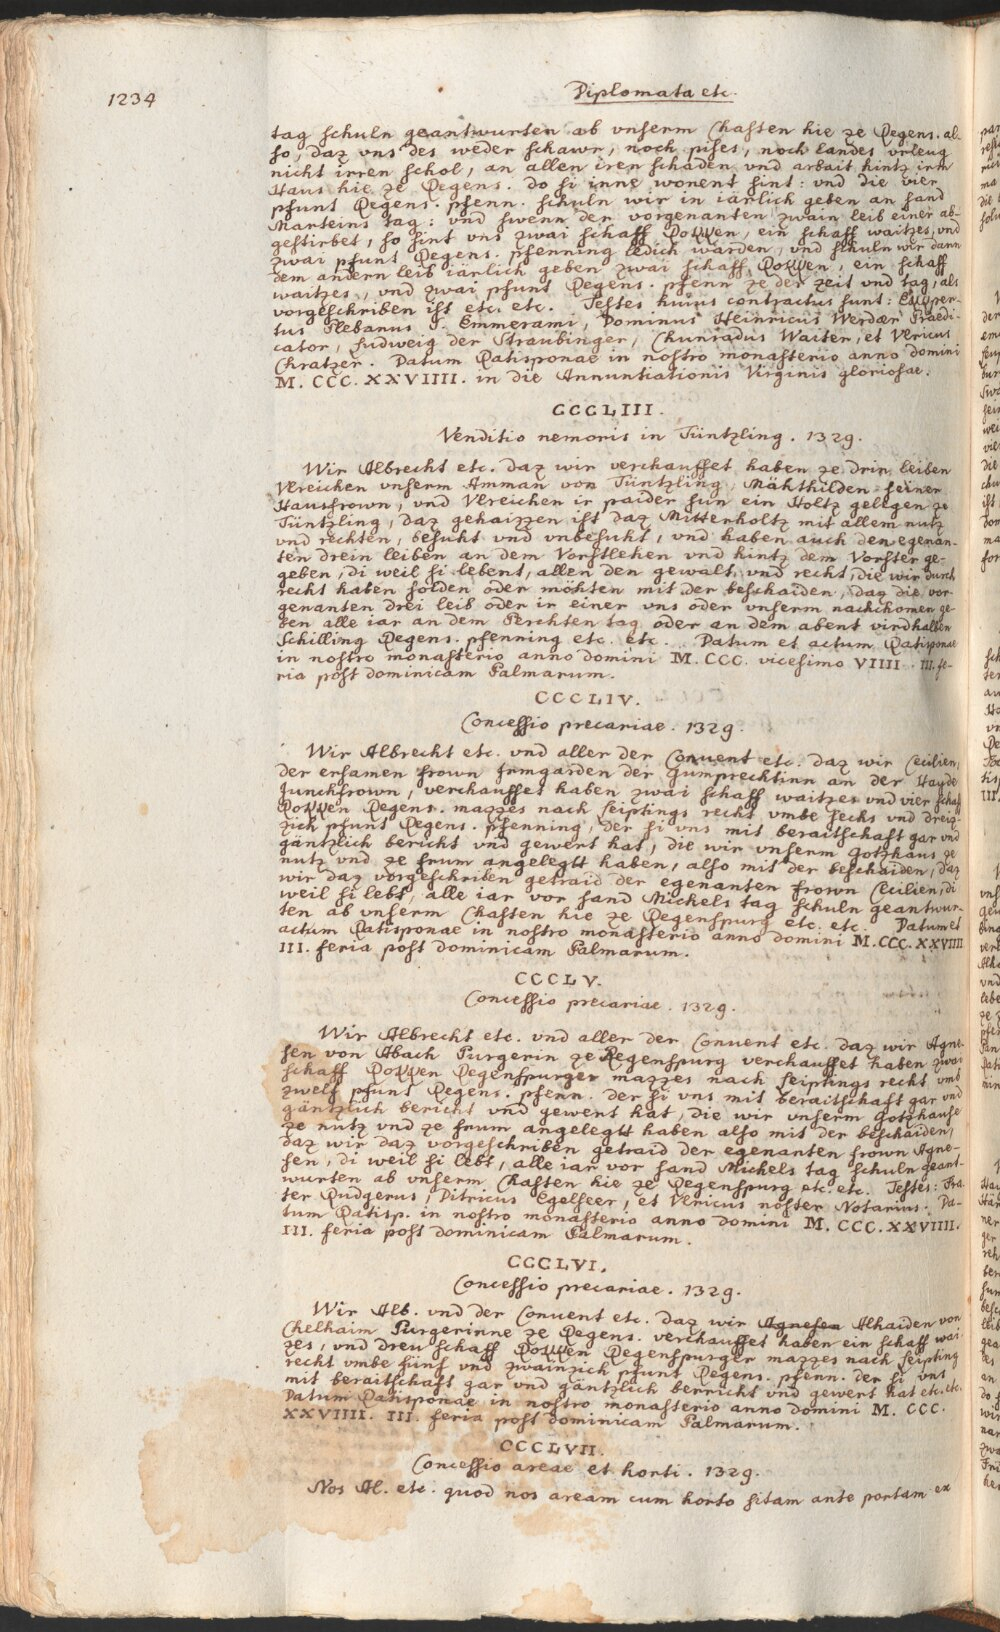 1234
Diplomata etc.
tag schuln geantwurten ab vnserm Chasten hie ze Regens. al-
so, daz vns des weder schawr, noch pises, noch landes vrleug
nicht irren schol, an allen iren schaden vnd arbait hintz irm
Haus hie ze Regens. do si inne wonent sint: vnd die vier
pfunt Regens. pfenn. schuln wir in iärlich geben an sand
Marteins tag: vnd swenn der vorgenanten zwain leib einer ab-
gestirbet, so sint vns zwai schaff Rokken, ein schaff waitzes, vnd
zwai pfunt Regens. pfenning ledich warden, vnd schuln wir dann
dem andern leib iärlich geben zwai schaff Rokken, ein schaff
waitzes, vnd zwai pfunt Regens. pfenn ze der zeit vnd tag, als
vorgeschriben ist etc. etc. Testes huius contractus sunt: Ekkper-
tus Plebanus S. Emmerami, Dominus Heinricus Werdær Praedi-
cator, Ludweig der Straubinger, Chunradus Waiter, et Vlricus
Chratzer. Datum Ratisponae in nostro monasterio anno domini
M. CCC. XXVIIII. in die Annuntiationis Virginis gloriosae.
CCCLIII.
Venditio nemoris in Tüntzling. 1329.
Wir Albrecht etc. daz wir verchauffet haben ze drin leiben
Vlreichen vnserm Amman von Tüntzling, Mähthilden seiner
Hausfrown, vnd Vlreichen ir paider sun ein Holtz gelegen ze
Tüntzling, daz gehaizzen ist daz Mittenholtz mit allem nutz
vnd rechten, besukt vnd vnbesukt, vnd haben auch den egenan-
ten drein leiben an dem Vorstlehen vnd hintz dem Vorster ge-
geben, di weil si lebent, allen den gewalt, vnd recht, die wir durch
recht haben solden oder möhten mit der beschaiden, daz die vor-
genanten drei leib oder ir einer vns oder vnserm nachchomen ge-
ben alle iar an dem Perchten tag oder an dem abent virdhalben
Schilling Regens. pfenning etc. etc. Datum et actum Ratisponae
in nostro monasterio anno domini M. CCC. vicesimo VIIII. III. fe-
ria post dominicam Palmarum.
CCCLIV.
Concessio precariae. 1329.
Wir Albrecht etc. vnd aller der Conuent etc. daz wir Cecilien,
der ersamen frown Irmgarden der Gumprechtinn an der Hayde
Junchfrown, verchauffet haben zwai schaff waitzes vnd vier schaff
Rokken Regens. mazzes nach leiptings recht vmbe sechs vnd dreiz-
zich pfunt Regens. pfenning, der si vns mit beraitschaft gar vnd
gäntzlich bericht vnd gewert hat, die wir vnserm Gotzhaus ze
nutz vnd ze frum angelegtt haben, also mit der beschaiden, daz
wir daz vorgeschriben getraid der egenanten frown Cecilien, di
weil si lebt, alle iar vor sand Michels tag schuln geantwur-
ten ab vnserm Chasten hie ze Regenspurg etc. etc. Datum et
actum Ratisponae in nostro monasterio anno domini M. CCC. XXVIIII
III. feria post dominicam Palmarum.
CCCLV.
Concessio precariae. 1329.
Wir Albrecht etc. vnd aller der Conuent etc. daz wir Agne-
sen von Abach Purgerin ze Regenspurg verchauffet haben zwai
schaff Rokken Regenspurger mazzes nach leiptings recht vmb
zwelf pfunt Regens. pfenn. der si vns mit beraitschaft gar vnd
gäntzlich bericht vnd gewert hat, die wir vnserm Gotzhause
ze nutz vnd ze frum angelegtt haben also mit der beschaiden,
daz wir daz vorgeschriben getraid der egenanten frown Agne-
sen, di weil si lebt, alle iar vor sand Michels tag schuln geant-
wurten ab vnserm Chasten hie ze Regenspurg etc. etc. Testes: Fra-
ter Rudgerus, Ditricus Egelseer, et Vlricus noster Notarius. Da-
tum Ratisp. in nostro monasterio anno domini M. CCC. XXVIIII.
III. feria post dominicam Palmarum.
CCCLVI.
Concessio precariae. 1329.
Wir Alb. vnd der Conuent etc. daz wir Agnesen Alhaiden von
Chelhaim Purgerinne ze Regens. verchauffet haben ein schaff wai-
zes, vnd dreu schaff Rokken Regenspurger mazzes nach leipting
recht vmbe fünf vnd zwainzich pfunt Regens. pfenn. der si vns
mit beraitschaft gar vnd gäntzlich berricht vnd gewert hat etc. etc.
Datum Ratisponae in nostro monasterio anno domini M. CCC.
XXVIIII. III. feria post dominicam Palmarum.
CCCLVII.
Concessio areae et horti. 1329.
Nos Al. etc. quod nos aream cum horto sitam ante portam ex